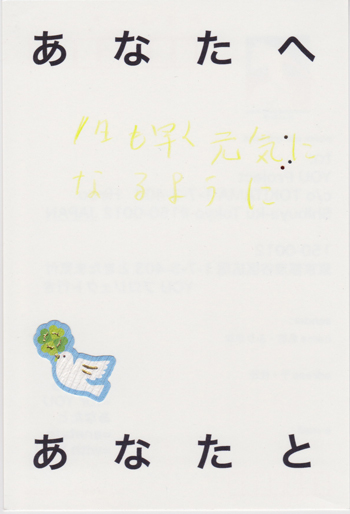 あなたへ
1日も早く元気に
なるように
あなたと